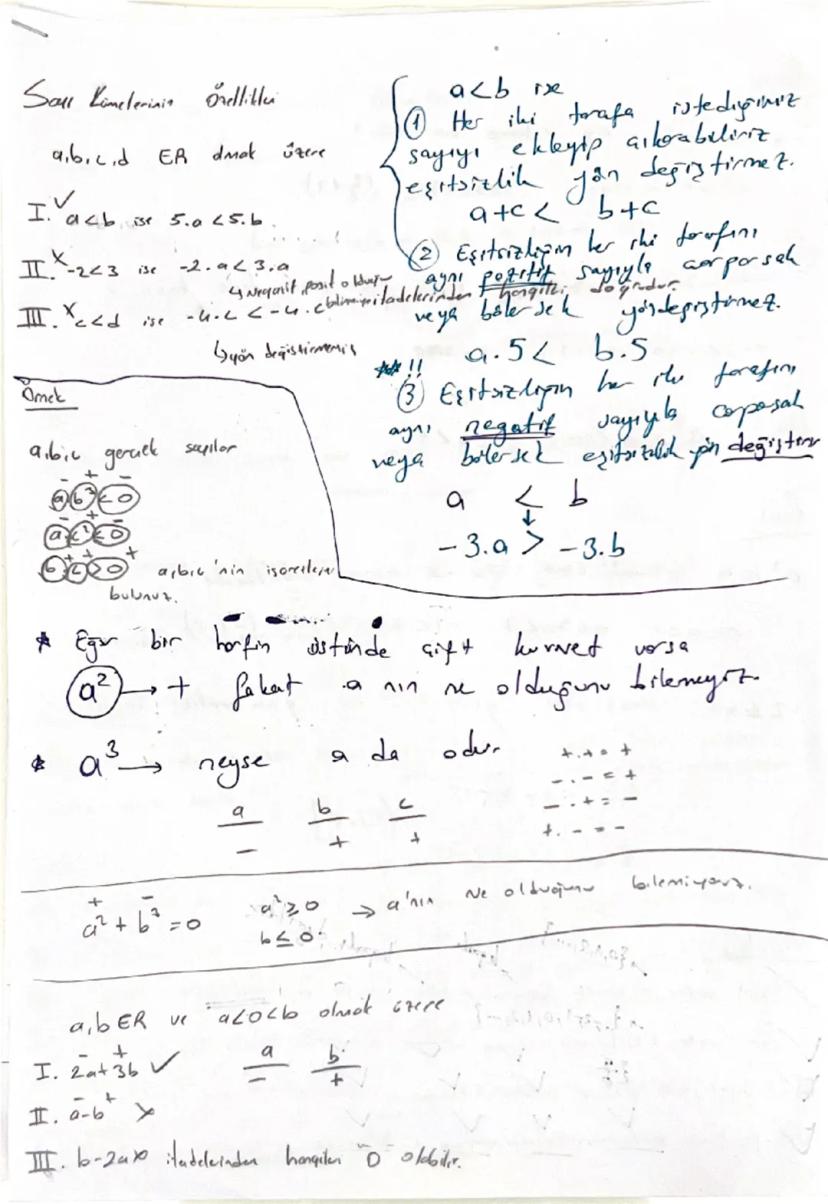 Sayı Kümelerinin Özellikleri
a,b,c,d ∈R olmak üzere
I. ✓ a<b ise 5.a <5.b
II. x -2<3 ise -2.a<3.a
↳ negatif, pozitif olduğu
III. x c<d ise -4.c < -4.d ifadelerinden hangileri doğrudur.
↳ yön değiştirmemiş
a<b ise
① Her iki tarafa istediğimiz
sayıyı ekleyip çıkarabiliriz
eşitsizlik yön değiştirmez.
a+c < b+c
② Eşitsizliğin her iki tarafını
aynı pozitif sayıyla çarparsak
veya bölersek yön değiştirmez.
a.5< b.5
!!
③ Eşitsizliğin her iki tarafını
aynı negatif sayıyla çarparsak
veya bölersek eşitsizlik yön değiştirir
a < b
↓
-3.a > -3.b
Örnek
a,b,c gerçek sayılar
- + -
a b² < 0
- + -
a c² < 0
+ + +
b c > 0 a,b,c 'nin işaretlerini
bulunuz.
* Eğer bir harfin üstünde çift kuvvet varsa
a² → + fakat a nın ne olduğunu bilemeyiz.
* a³ → neyse a da odur
+ . + = +
- . - = +
- . + = -
+ . - = -
a b c
- + +
+ -
a² + b³ = 0 a² ≥ 0 → a'nın ne olduğunu bilemiyoruz.
b ≤ 0
a,b ∈R ve a<0<b olmak üzere
- +
I. 2a+3b ✓
a b
- +
- +
II. a-b x
III. b-2a x ifadelerinden hangileri 0 olabilir.